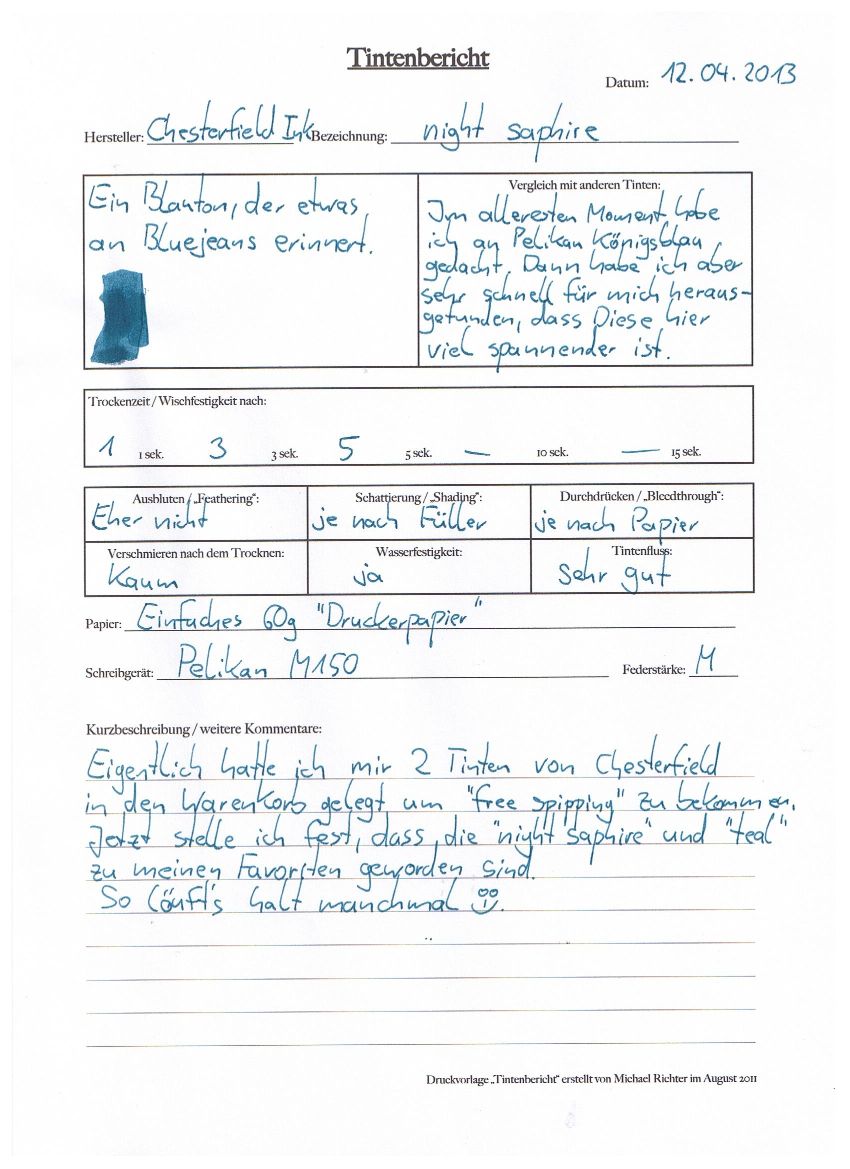 Tintenbericht
Datum: 12.04.2013
Hersteller: Chesterfield Ink Bezeichnung: night saphire
Ein Blauton, der etwas
an Bluejeans erinnert.
Vergleich mit anderen Tinten:
Im allerersten Moment habe
ich an Pelikan Königsblau
gedacht. Dann habe ich aber
sehr schnell für mich heraus-
gefunden, dass Diese hier
viel spannender ist.
Trockenzeit / Wischfestigkeit nach:
1 1 sek. 3 3 sek. 5 5 sek. — 10 sek. — 15 sek.
Ausbluten / „Feathering": Schattierung / „Shading": Durchdrücken / „Bleedthrough":
Eher nicht je nach Füller je nach Papier
Verschmieren nach dem Trocknen: Wasserfestigkeit: Tintenfluss:
Kaum ja Sehr gut
Papier: Einfaches 60g "Druckerpapier"
Schreibgerät: Pelikan M150 Federstärke: M
Kurzbeschreibung / weitere Kommentare:
Eigentlich hatte ich mir 2 Tinten von Chesterfield
in den Warenkorb gelegt um "free spipping" zu bekommen.
Jetzt stelle ich fest, dass die "night saphire" und "teal"
zu meinen Favoriten geworden sind.
So läuft's halt manchmal
Druckvorlage „Tintenbericht" erstellt von Michael Richter im August 2011